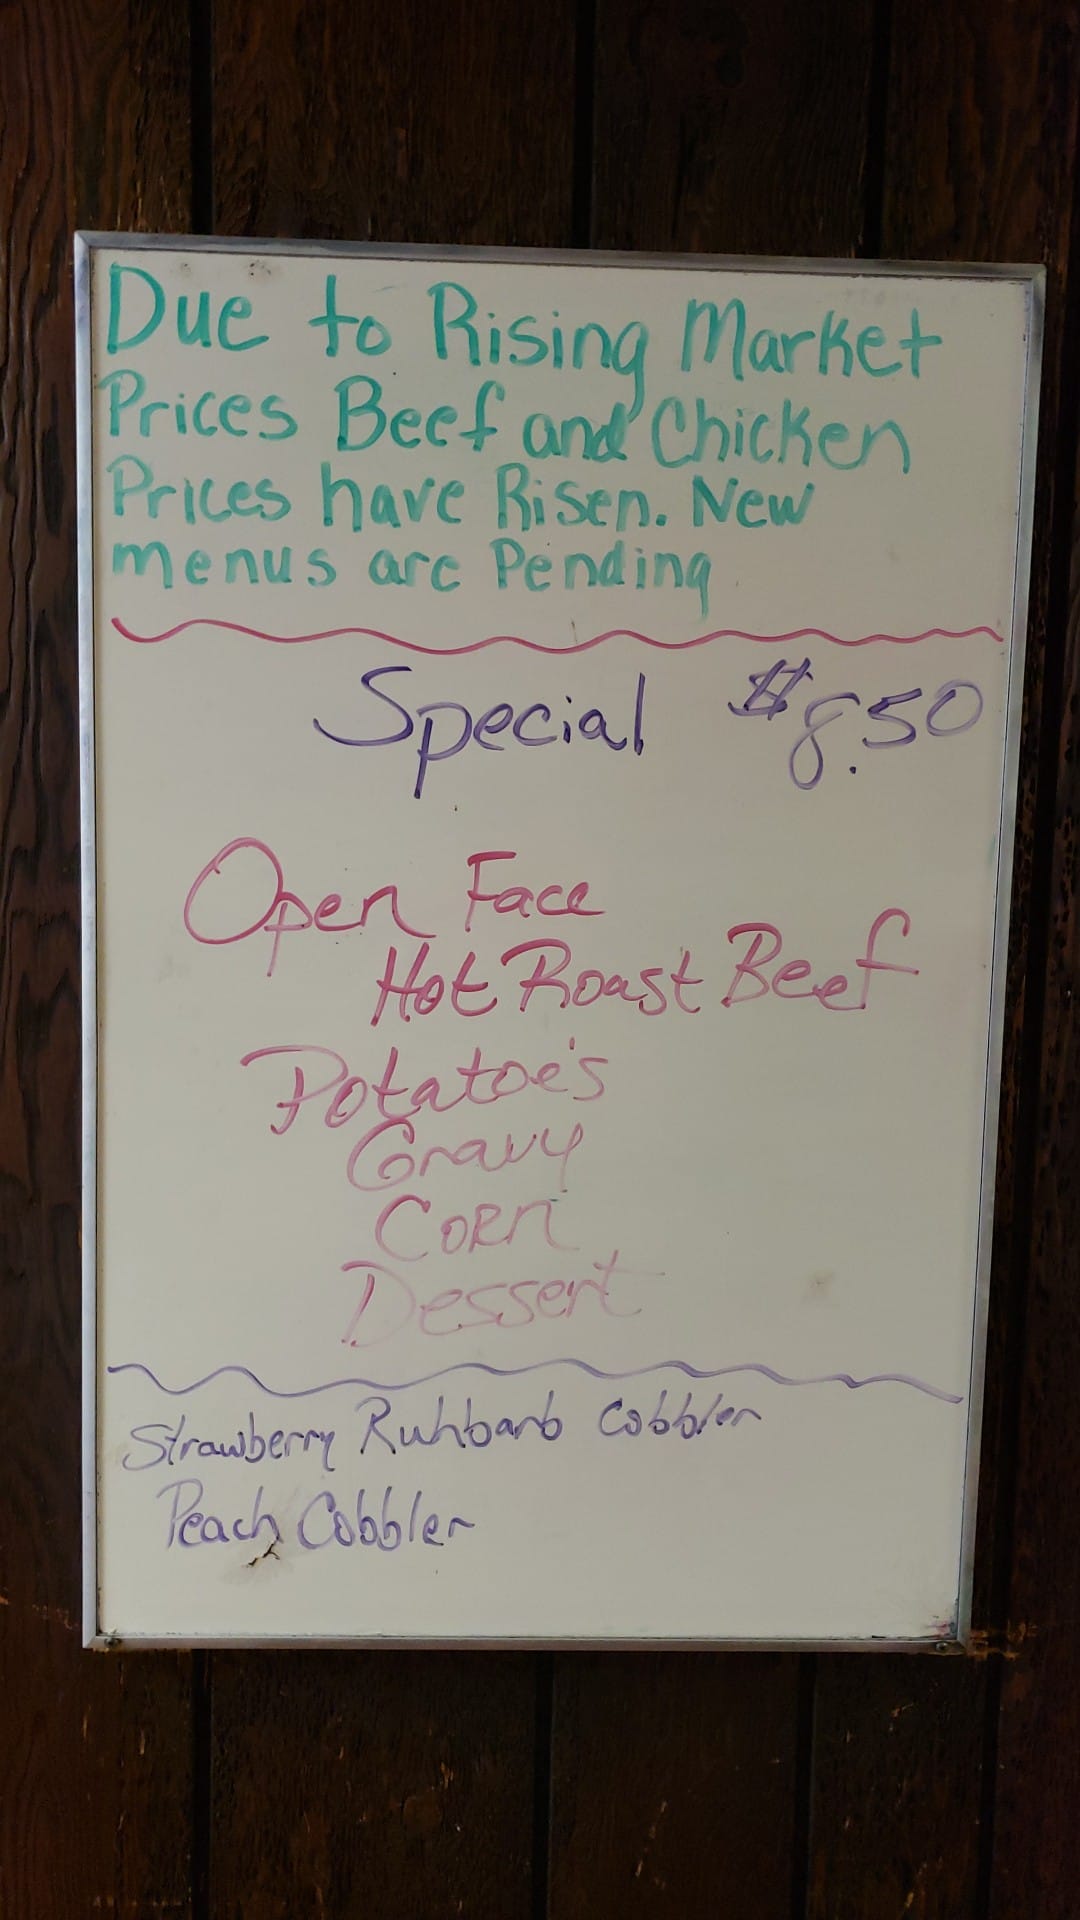 Due to Rising Market
Prices Beef and Chicken
Prices have Risen. New
menus are Pending
Special $8.50
Open Face
Hot Roast Beef
Potatoe's
Gravy
CORn
Dessert
Strawberry Ruhbarb Cobbler
Peach Cobbler